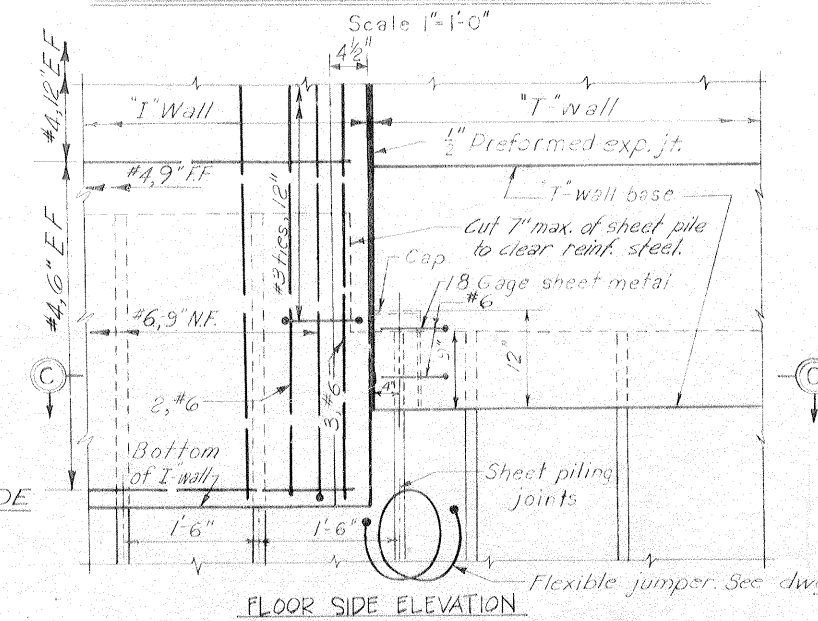 Scale 1"=1'-0"
4½"
#4,12" E.F
"I" Wall
"T"-wall
½" Preformed exp. jt.
#4,9" F.F
"T"-wall base
Cut 7" max. of sheet pile
to clear reinf. steel.
#3 ties, 12"
Cap
18 Gage sheet metal
#6
#4,6" E.F
#6-9" N.F.
9"
12"
C
C
4"
2,#6
3,#6
Bottom
of I-wall
Sheet piling
joints
DE
1'-6"
1'-6"
Flexible jumper. See dwg
FLOOR SIDE ELEVATION